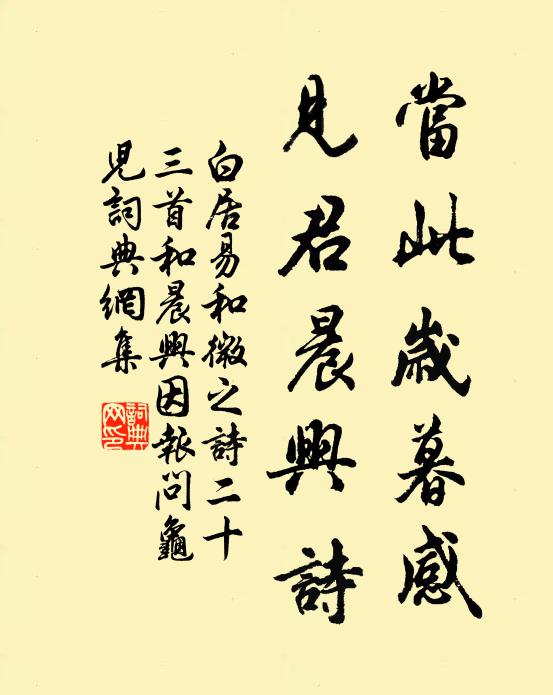 當此歲暮感
見君晨興詩
白居易和微之詩二十
三首和晨興因報問龜
兒詞典網集
詞典
网印